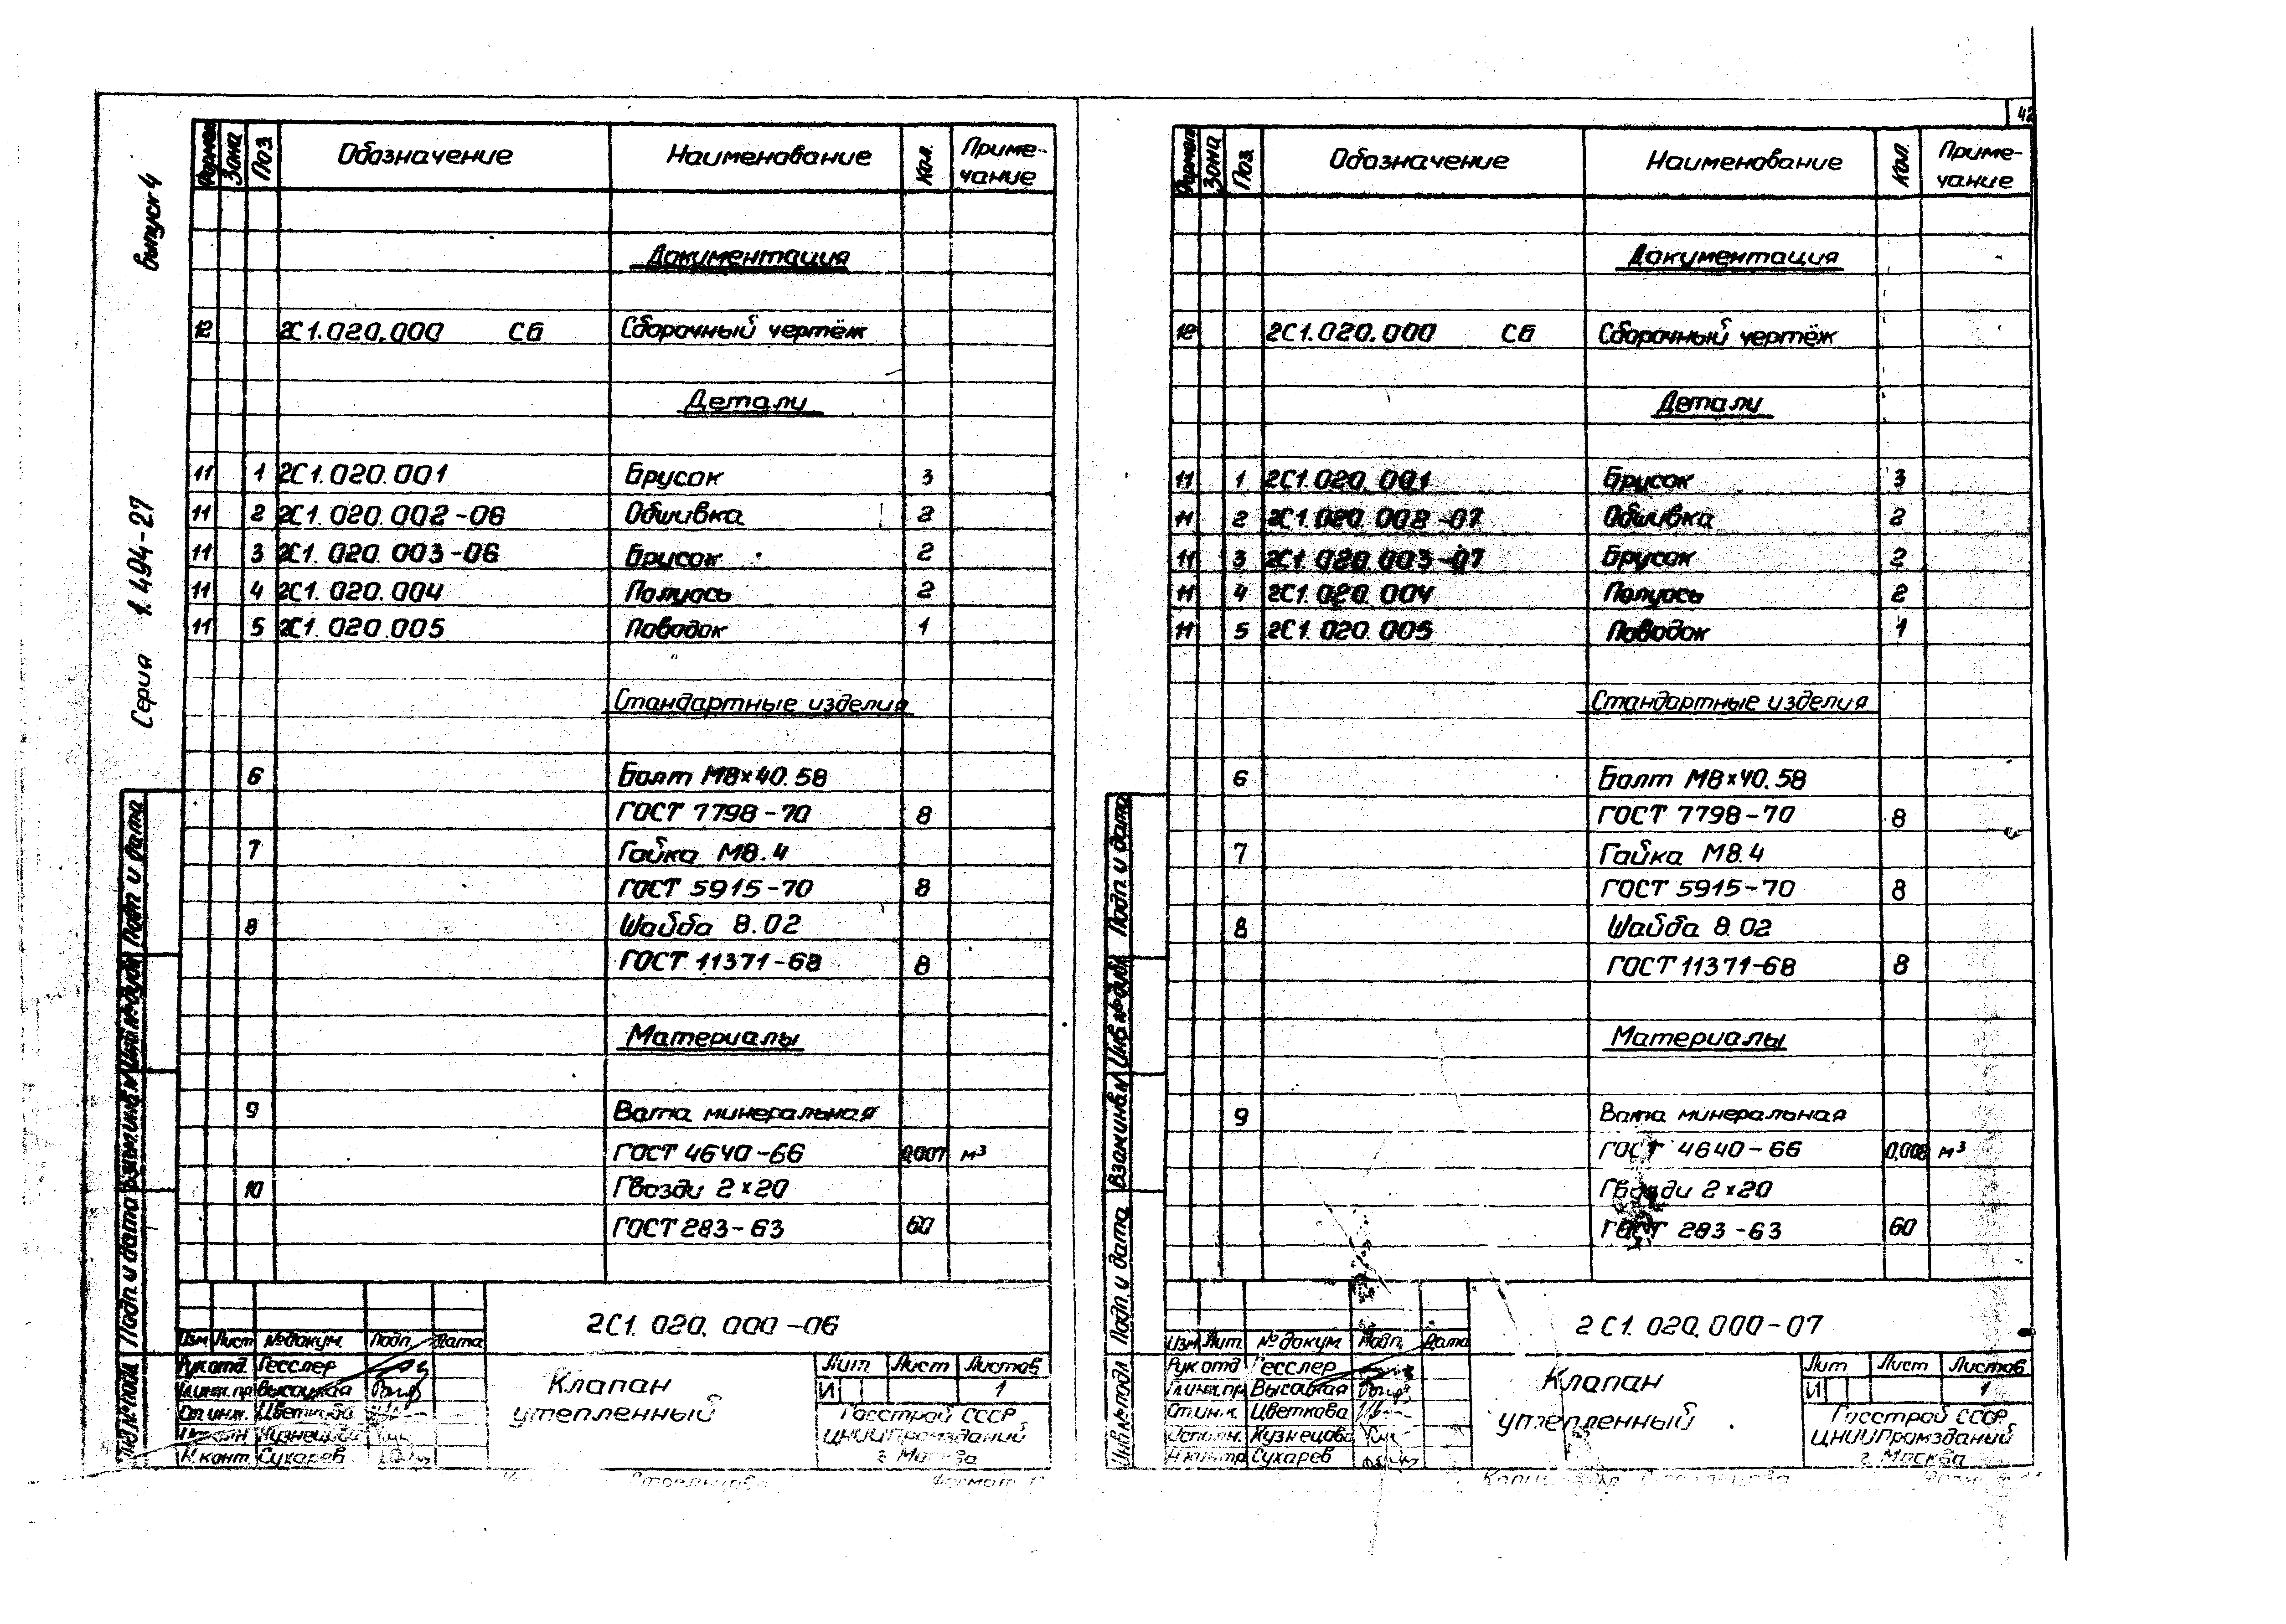 42
Выпуск 4
Серия 1.494-27
Формат Зона Поз. Обозначение Наименование Кол. Приме-чание
Документация
12 2С1.020.000 СБ Сборочный чертёж
Детали
11 1 2С1.020.001 Брусок 3
11 2 2С1.020.002-06 Обшивка 2
11 3 2С1.020.003-06 Брусок 2
11 4 2С1.020.004 Полуось 2
11 5 2С1.020.005 Поводок 1
Стандартные изделия
6 Болт М8×40.58
ГОСТ 7798-70 8
7 Гайка М8.4
ГОСТ 5915-70 8
8 Шайба 8.02
ГОСТ 11371-68 8
Материалы
9 Вата минеральная
ГОСТ 4640-66 0,007 м³
10 Гвозди 2×20
ГОСТ 283-63 60
2С1.020.000-06
Изм Лист № докум. Подп. Дата
Рук отд. Гесслер
Гл.инж.пр Высоцкая
Ст.инж. Цветкова
Кузнецова
Н.конт Сухарев
Клапан
утепленный
Лит Лист Листов
И 1
Госстрой СССР
ЦНИИПромзданий
г. Москва
Формат
Подп. и дата
Взам.инв.№
Подп. и дата
Формат Зона Поз. Обозначение Наименование Кол. Приме-чание
Документация
12 2С1.020.000 СБ Сборочный чертёж
Детали
11 1 2С1.020.001 Брусок 3
11 2 2С1.020.002-07 Обшивка 2
11 3 2С1.020.003-07 Брусок 2
11 4 2С1.020.004 Полуось 2
11 5 2С1.020.005 Поводок 1
Стандартные изделия
6 Болт М8×40.58
ГОСТ 7798-70 8
7 Гайка М8.4
ГОСТ 5915-70 8
8 Шайба 8.02
ГОСТ 11371-68 8
Материалы
9 Вата минеральная
ГОСТ 4640-66 0,008 м³
Гвозди 2×20
ГОСТ 283-63 60
2С1.020.000-07
Изм Лит. № докум Подп. Дата
Рук отд Гесслер
Гл.инж.пр Высоцкая
Ст.инж. Цветкова
Исполн. Кузнецова
Н.контр Сухарев
Клапан
утепленный
Лит Лист Листов
И 1
Госстрой СССР
ЦНИИПромзданий
г. Москва
Подп. и дата
Инв.№ дубл.
Взам.инв.№
Подп. и дата
Инв.№ подл